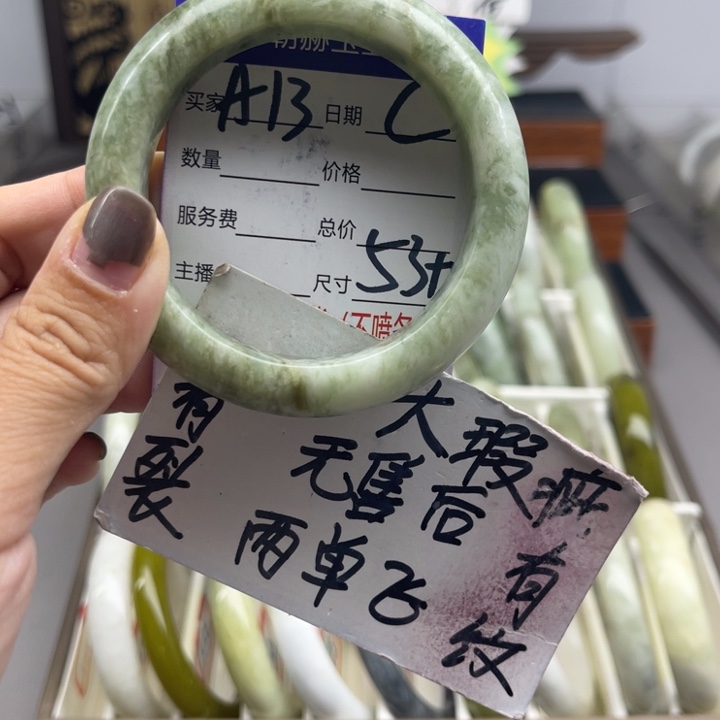 买家 A13 日期 C
数量 价格
服务费 总价
主播 尺寸 53+
有裂
大瑕疵
无售后
两单飞
有纹